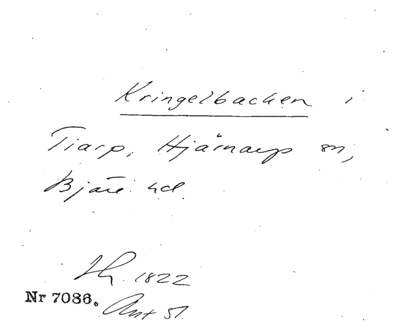 Kringelbacken i
Tiarp, Hjärnarp sn,
Bjäre hd.
1822
Nr 7086. Ant 51.